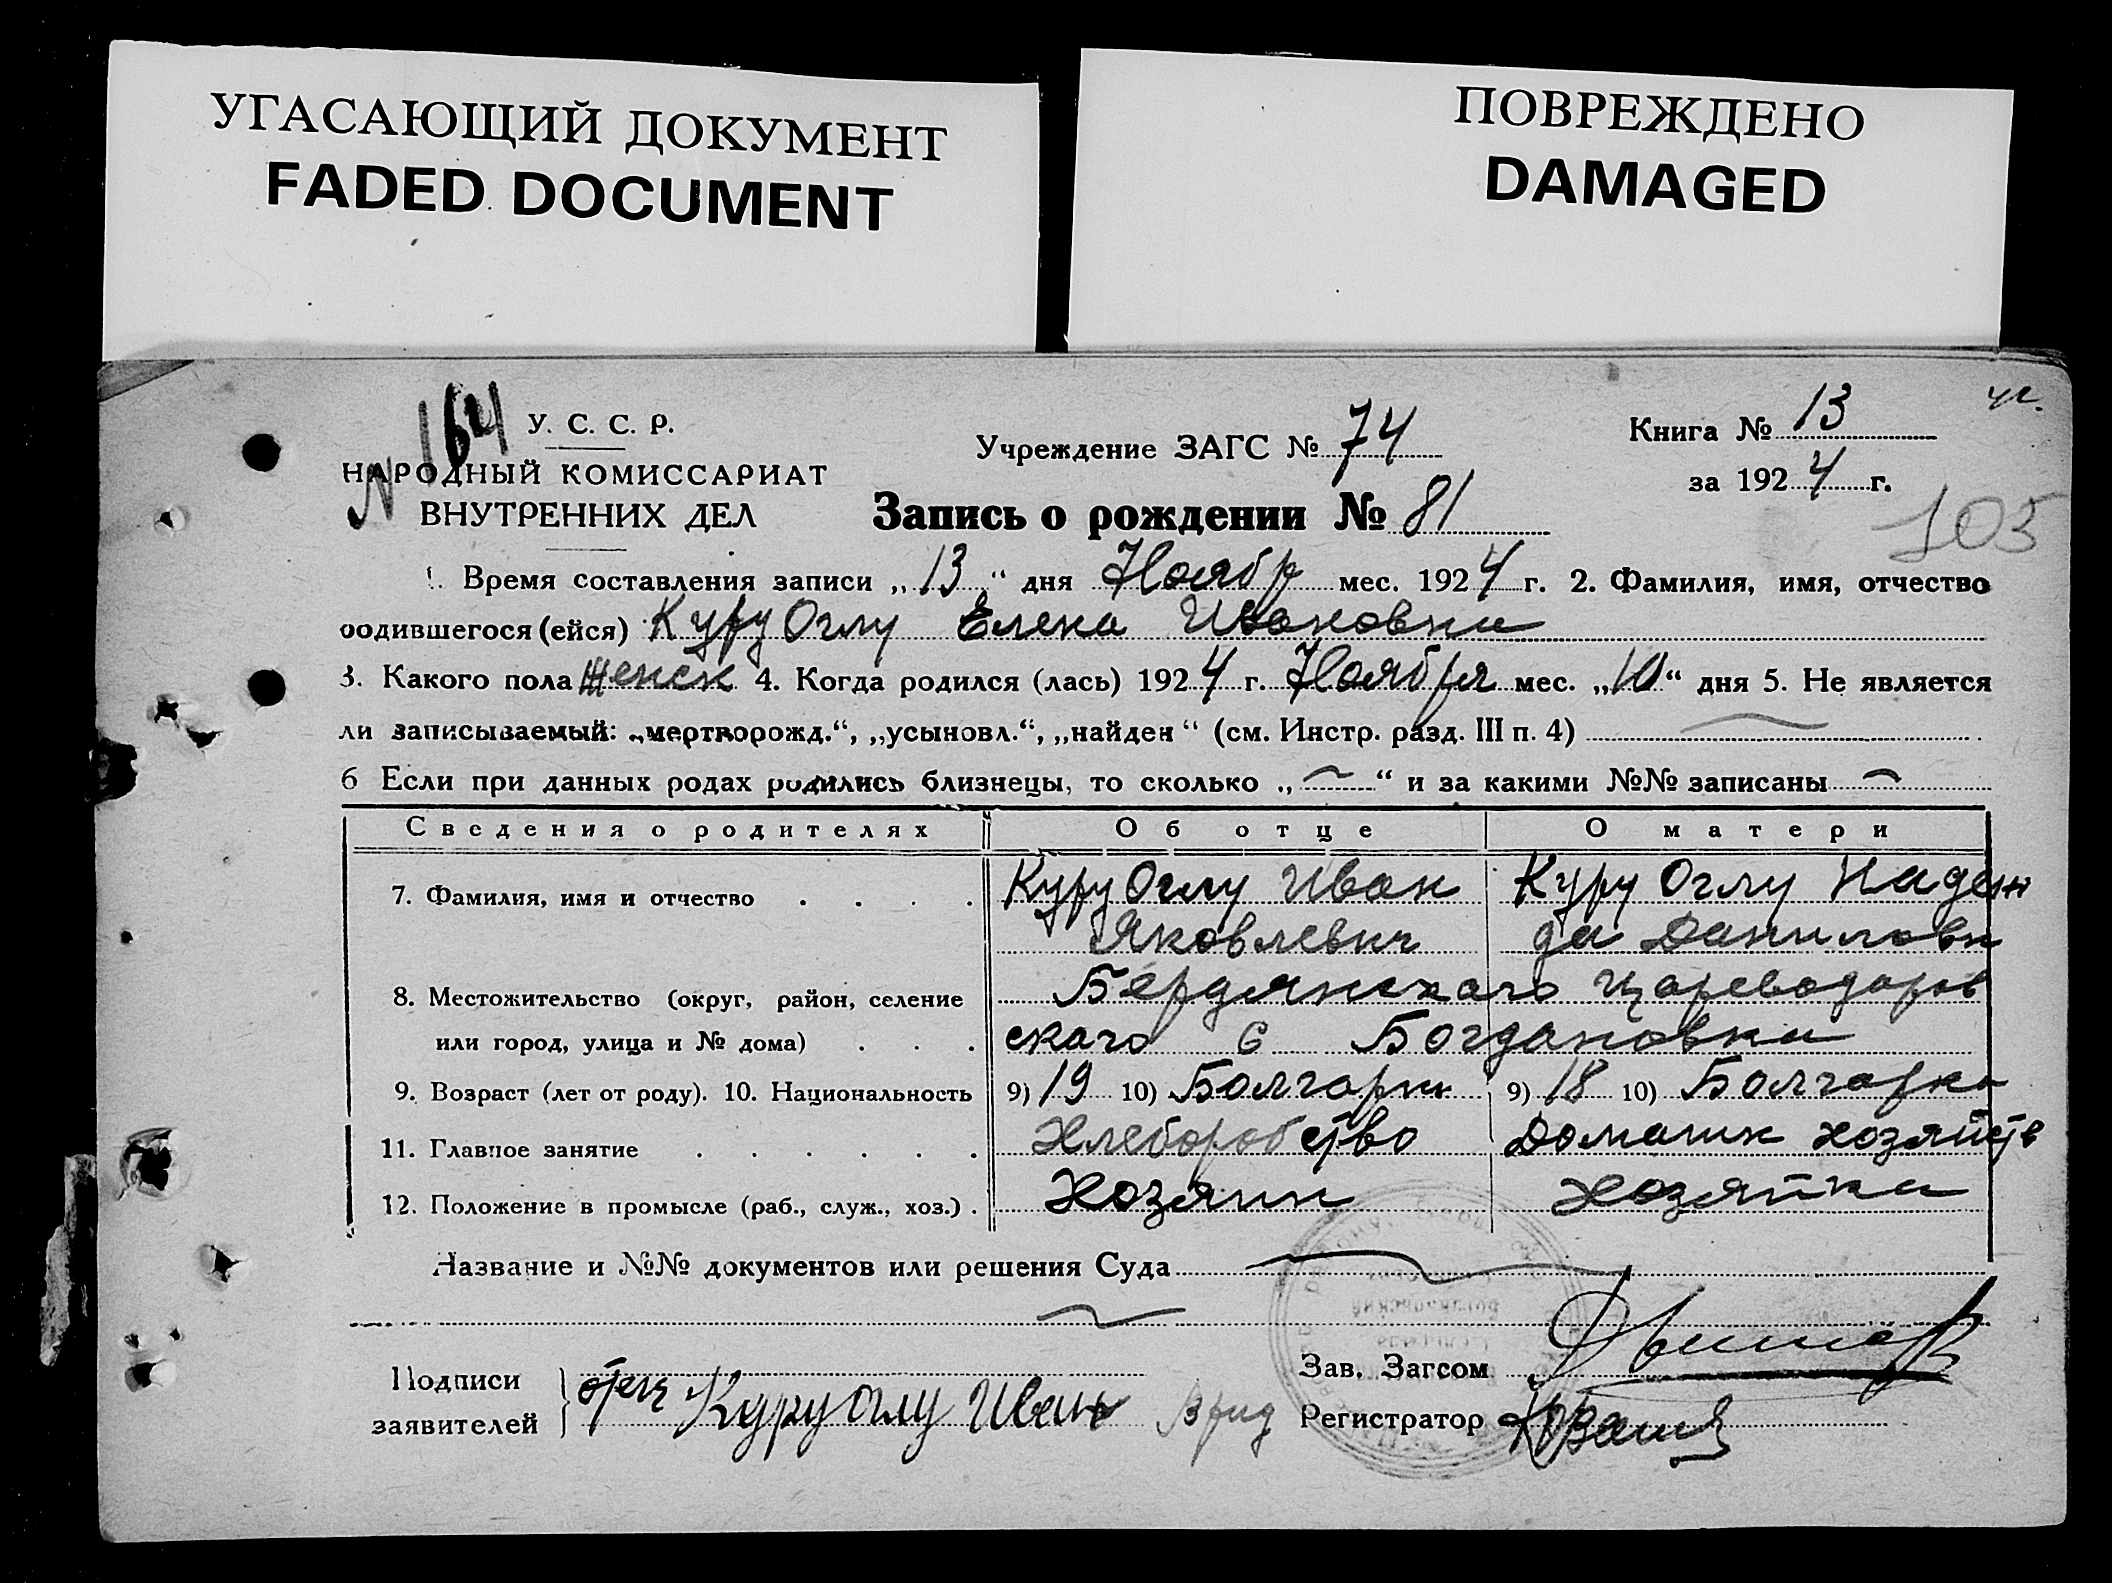 УГАСАЮЩИЙ ДОКУМЕНТ
FADED DOCUMENT
ПОВРЕЖДЕНО
DAMAGED
№ 164
У. С. С. Р.
НАРОДНЫЙ КОМИССАРИАТ
ВНУТРЕННИХ ДЕЛ
Учреждение ЗАГС № 74
Книга № 13
за 1924 г.
103
Запись о рождении № 81
1. Время составления записи „13“ дня Ноябр мес. 1924 г. 2. Фамилия, имя, отчество
родившегося (ейся) Куру Оглу Елена Ивановна
3. Какого пола Женск 4. Когда родился (лась) 1924 г. Ноября мес. „10“ дня 5. Не является
ли записываемый: „мертворожд.“, „усыновл.“, „найден“ (см. Инстр. разд. III п. 4)
6 Если при данных родах родились близнецы, то сколько „—“ и за какими №№ записаны —
Сведения о родителях Об отце О матери
7. Фамилия, имя и отчество Куру Оглу Иван Куру Оглу Надеж
Яковлевич да Даниловн
8. Местожительство (округ, район, селение Бердянского Цареводаров
или город, улица и № дома) ского с Богдановка
9. Возраст (лет от роду). 10. Национальность 9) 19 10) Болгарин 9) 18 10) Болгарка
11. Главное занятие Хлеборобство Домашн хозяйств
12. Положение в промысле (раб., служ., хоз.) Хозяин Хозяйка
Название и №№ документов или решения Суда
Подписи
заявителей
отец Куруоглу Иван
Зав. Загсом
Врид Регистратор